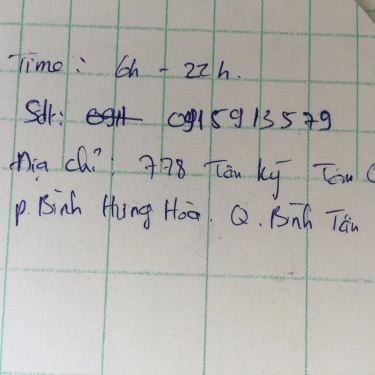 Time: 6h - 22h.
Sđt: 0915913579
Địa chỉ: 778 Tân Kỳ Tân
P. Bình Hưng Hòa. Q. Bình Tân